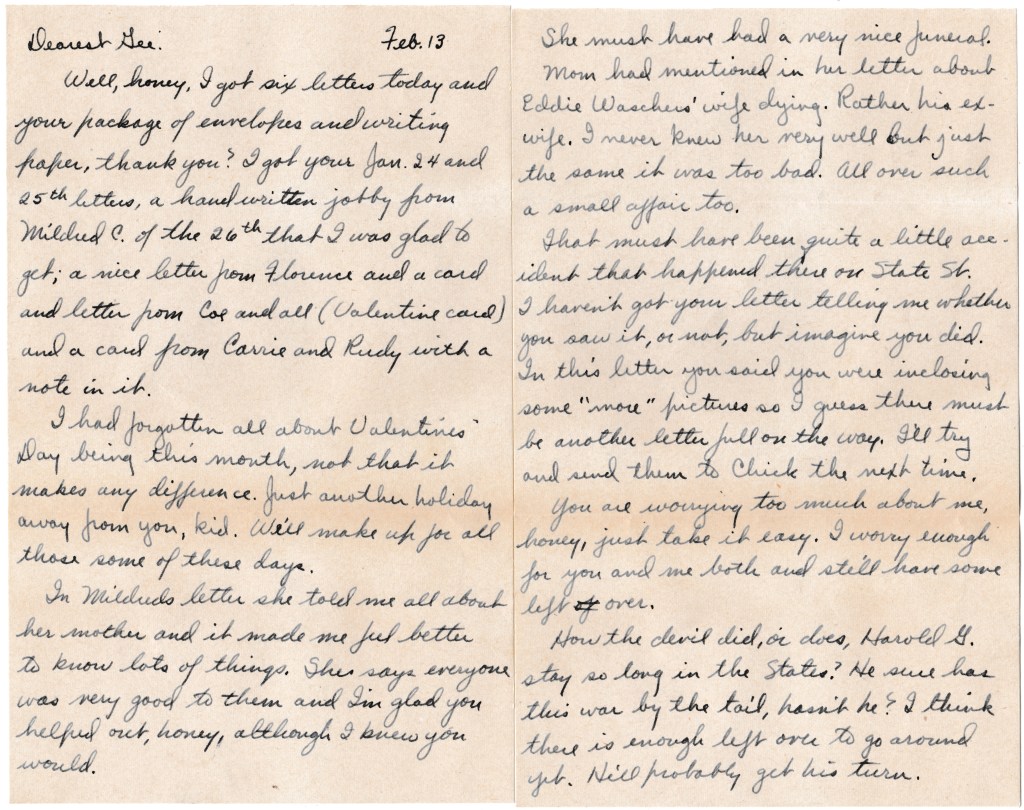 Dearest Gee. Feb. 13
Well, honey, I got six letters today and
your package of envelopes and writing
paper, thank you? I got your Jan. 24 and
25th letters, a hand written jobby from
Mildred C. of the 26th that I was glad to
get; a nice letter from Florence and a card
and letter from Coe and all (Valentine card)
and a card from Carrie and Rudy with a
note in it.
I had forgotten all about Valentines'
Day being this month, not that it
makes any difference. Just another holiday
away from you, kid. We'll make up for all
those some of these days.
In Mildreds letter she told me all about
her mother and it made me feel better
to know lots of things. She says everyone
was very good to them and I'm glad you
helped out, honey, although I knew you
would.
She must have had a very nice funeral.
Mom had mentioned in her letter about
Eddie Waschers' wife dying. Rather his ex-
wife. I never knew her very well but just
the same it was too bad. All over such
a small affair too.
That must have been quite a little acc-
ident that happened there on State St.
I haven't got your letter telling me whether
you saw it, or not, but imagine you did.
In this letter you said you were inclosing
some "more" pictures so I guess there must
be another letter full on the way. I'll try
and send them to Chick the next time.
You are worrying too much about me,
honey, just take it easy. I worry enough
for you and me both and still have some
left over.
How the devil did, or does, Harold G.
stay so long in the States? He sure has
this war by the tail, hasn't he? I think
there is enough left over to go around
yet. He'll probably get his turn.